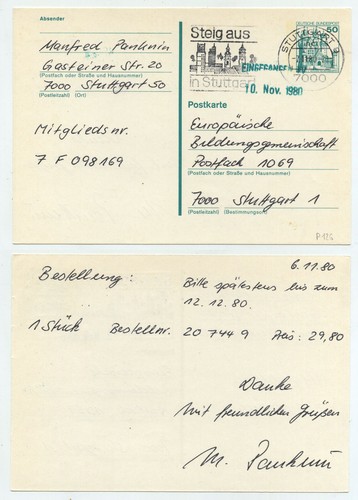 Absender
Manfred Panknin
Gasteiner Str. 20
(Postfach oder Straße und Hausnummer)
7000 Stuttgart 50
(Postleitzahl) (Ort)
Mitgliedsnr.
7 F 098169
Steig aus
in Stuttgart
STUTTGART
7000
DEUTSCHE BUNDESPOST
50
EINGEGANGEN
10. Nov. 1980
Postkarte
Europäische
Bildungsgemeinschaft
Postfach 1069
(Postfach oder Straße und Hausnummer)
7000 Stuttgart 1
(Postleitzahl) (Bestimmungsort)
6.11.80
Bestellung:
Bitte spätestens bis zum
12.12.80.
1 Stück Bestellnr. 20 744 9 Preis: 29,80
Danke
Mit freundlichen Grüßen
M. Panknin